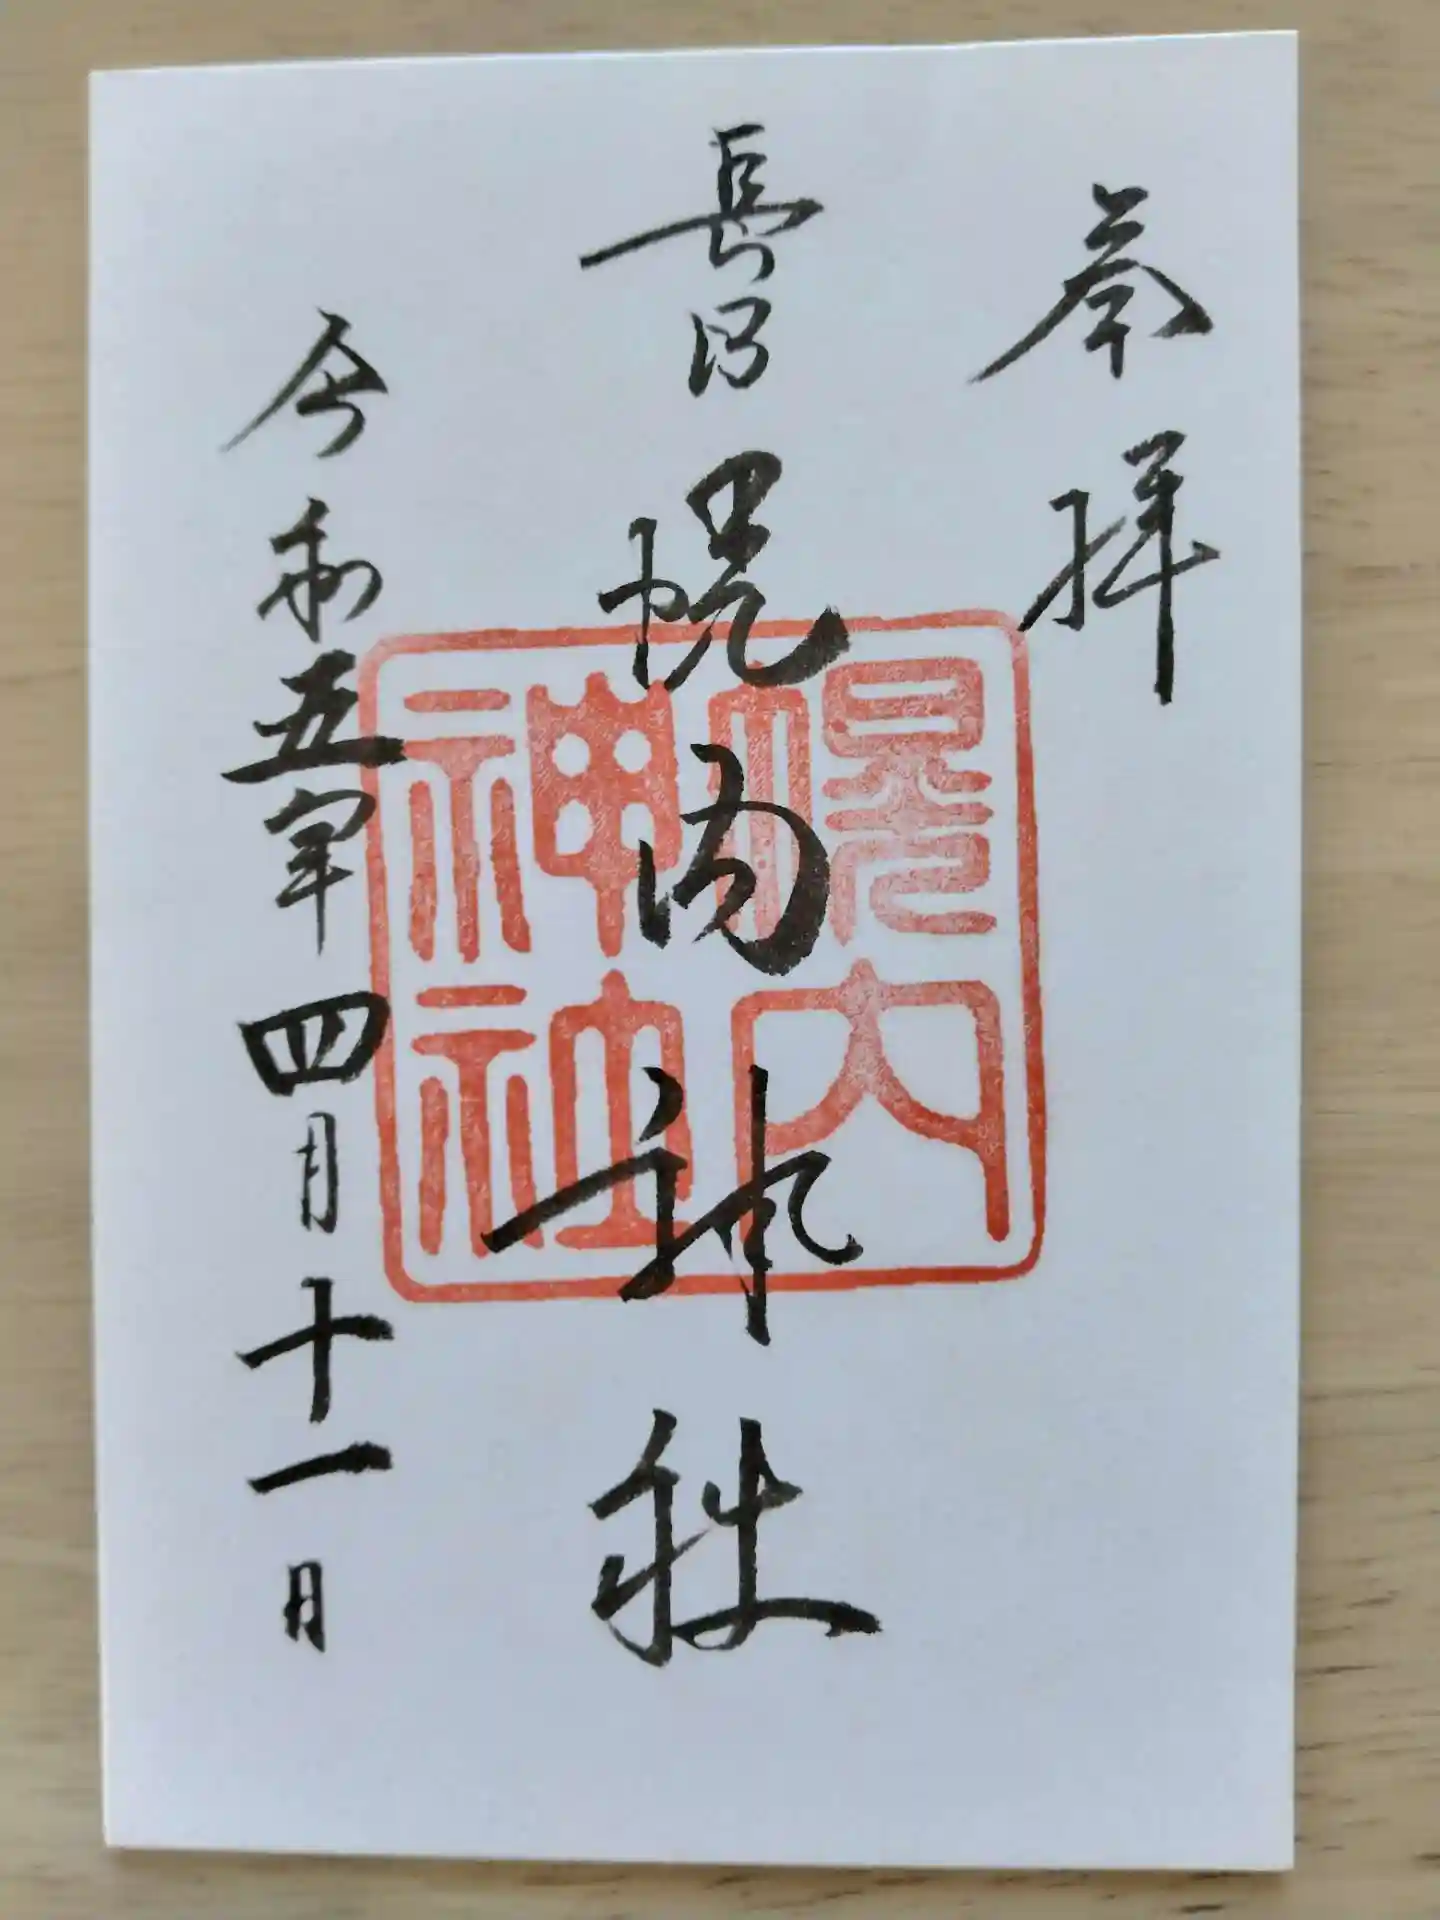 奉拝
長沼幌内神社
令和五年四月十一日
幌内
神社